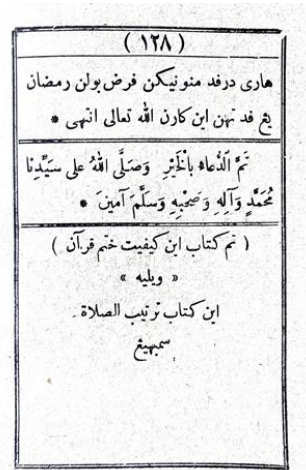 ( ١٢٨ )
هاري درفد منونيكن فرض بولن رمضان
يڠ فد تهن اين كارن الله تعالى انتهى *
تَمَّ الدُّعَاءُ بِالْخَيْرِ وَصَلَّى اللهُ عَلَى سَيِّدِنَا
مُحَمَّدٍ وَآلِهِ وَصَحْبِهِ وَسَلَّمَ آمِينَ *
( تم كتاب اين كيفيت ختم قرآن )
« ويليه »
اين كتاب ترتيب الصلاة
سمبهيڠ